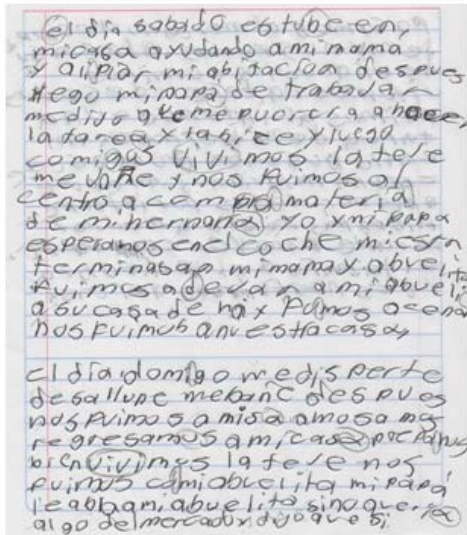 el dia sabado estube en,
micasa ayudando amimama
y alipiar miabitacion despues
llego mipapa de trabajar
medijo queme puciera ahacer
la tarea y lahice y luego
comigas vivimos latele
mevañe y nos fuimos al
centro a compra materia
de mihermana yo ymipapa
esperanos enelcoche miesn
terminaban mimama y abuelita
fuimos adevar amiabueli
asucasa de hay fuimos acena
nosfuimos anuestacasa,
el día domigo medisperte
desallune mebañe despues
nosfuimos amisa amosamos
regresamos amicasa
bien vivimos latele nos
fuimos comiabuelita mipapá
leablamiabuelita sinoqueria
algo delmercado dijo que si